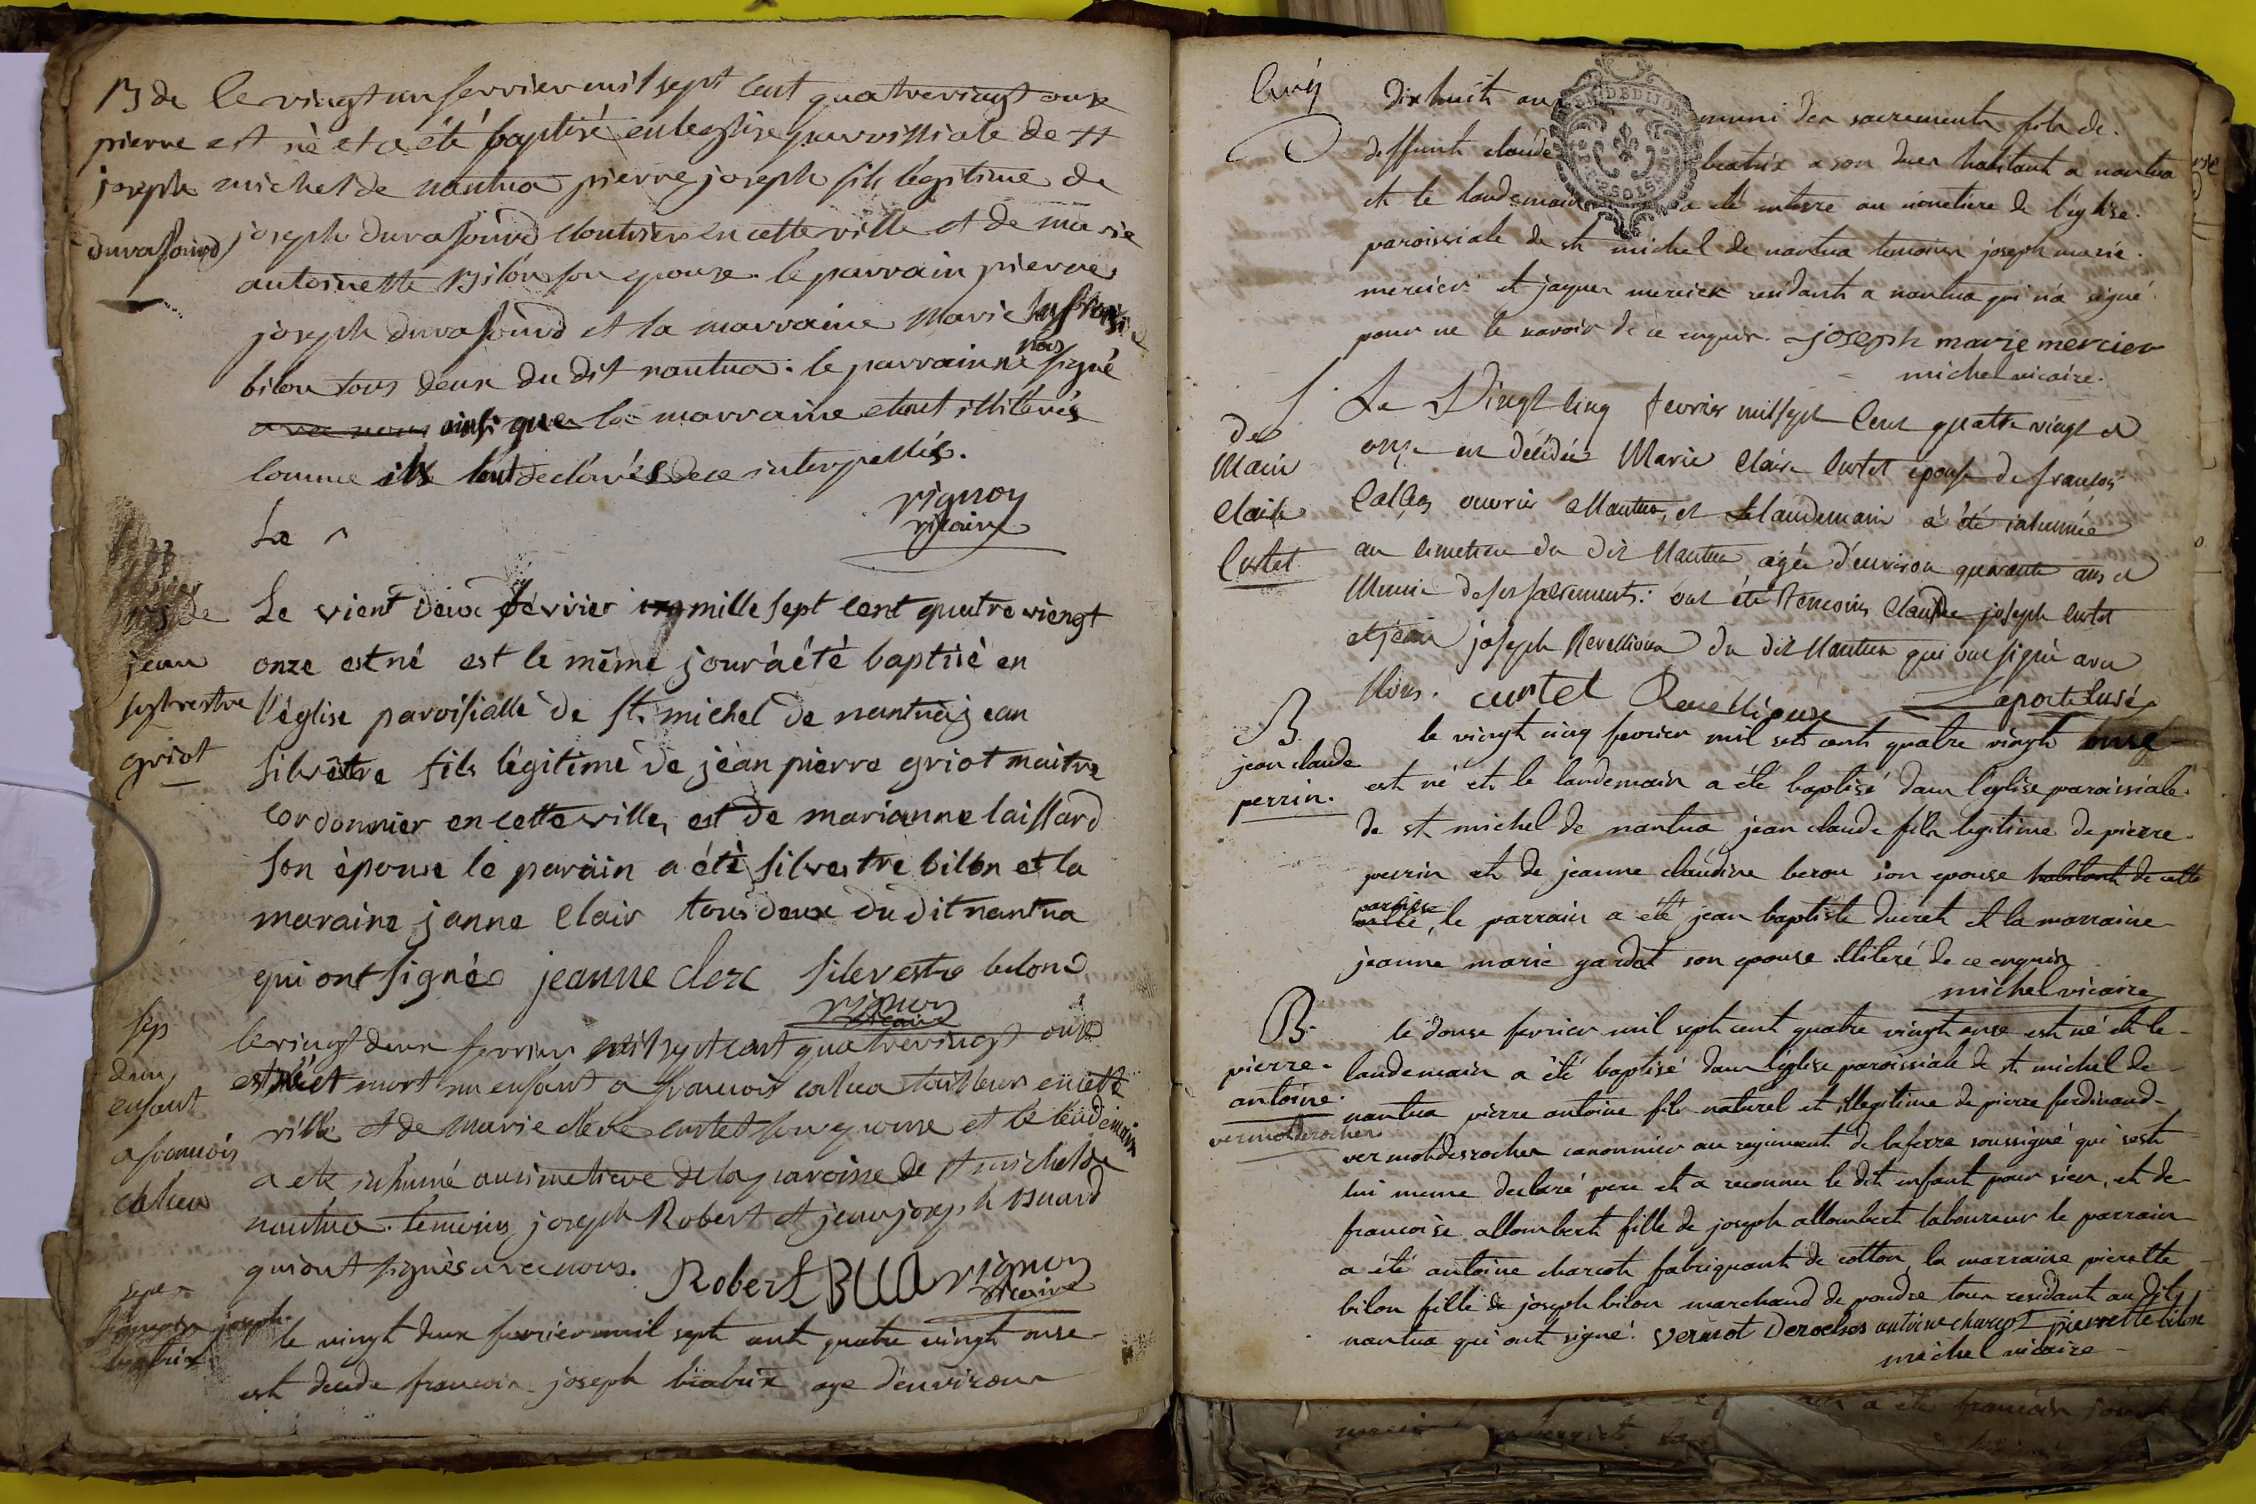 B de
pierre
joseph
durafourd
le vingt un fevrier mil sept cent quatrevingt onze
est né et a été baptisé en leglise parroissiale de st
michel de nantua pierre joseph fils légitime de
joseph durafourd cloutier en cette ville et de marie
antoinette Bilon son epouse. le parrain pierre
joseph durafourd et la marraine marie
bilon tous deux du dit nantua. le parrain ne signé
avec nous ainsi que la marraine etant illiterés
comme ils l'ont declarés de ce interpellés.
vignon
vicaire
Le
bs de
jean
sylvestre
griot
Le vient deux février mille sept cent quatre viengt
onze est né est le même jour à été baptisé en
l'église paroisialle de St. michel de nantua jean
silvêstre fils légitime de jéan piérre griot maitre
cordonnier en cette ville, est de marianne laissard
son épouse le parain a été silvestre bilon et la
maraine janne clair tous deux du dit nantua
qui ont signée jeanne clerc silevestre belon
vignon
vicaire
sep
d'un
enfant
a francois
calua
le vingt deux fevrier mil sept cent quatrevingt onze
est né et mort un enfant a francois calua tailleur en cette
ville et de marie clere curtet son epouse et le lendemain
a eté inhumé au simetiere de la paroisse de st michel de
nantua. temoins joseph Robert et jean joseph Buard
qui ont signés avec nous.
Robert Buar vignon
vicaire
sepe
francois joseph
beatrix
le vingt deux fevrier mil sept cent quatre vingt onse
est decede francois joseph beatrix age d'environ
cinq
dixhuit ans muni des sacrements fils de
deffunt claude beatrix a son vivant habitant a nantua
et le landemain a été enterre au cimetiere de l'eglise
paroissiale de st michel de nantua temoins joseph marie
mercier et jaques mercier residants a nantua qui n'a signé
pour ne le savoir de ce enquis. joseph marie mercier
michel vicaire.
S.
de
Marie
Claire
Curtet
Le Vingt cinq fevrier mil sept cent quatre vingt et
onze est décédée Marie Claire Curtet épouse de françois
Callua ouvrier a Nantua, et le landemain à été inhumée
au cimetiere du dit Nantua agée d'environ quarante ans et
Munie de ses sacrements: ont été temoins Claude joseph Curtet
et jean joseph Revellioux du dit Nantua qui ont signé avec
Nous. curtet
B
jean claude
perrin.
le vingt cinq fevrier mil sept cents quatre vingts onze
est né et le landemain a été baptisé dans l'eglise paroissiale
de st michel de nantua jean claude fils legitime de pierre
perrin et de jeanne claudine beron son epouse habitants de cette
paroisse
ville, le parrain a été jean baptiste ducret et la marraine
jeanne marie gardat son epouse illiteré de ce enquis
michel vicaire
B.
pierre
antoine
vermotdesroches
le douse fevrier mil sept cent quatre vingt onse est né et le
landemain a été baptisé dans l'eglise paroissiale de st michel de
nantua pierre antoine fils naturel et illegitime de pierre ferdinand
vermotdesroches canonnier au regiment de laferre soussigné qui s'est
lui meme declaré pere et a reconnu le dit enfant pour sien, et de
francoise allombert fille de joseph allombert laboureur le parrain
a été antoine charcot fabriquant de cotton, la marraine pierrette
bilon fille de joseph bilon marchand de poudre tous residant au dit
nantua qui ont signé. vermot Deroches antoine charcot pierrette bilon
michel vicaire